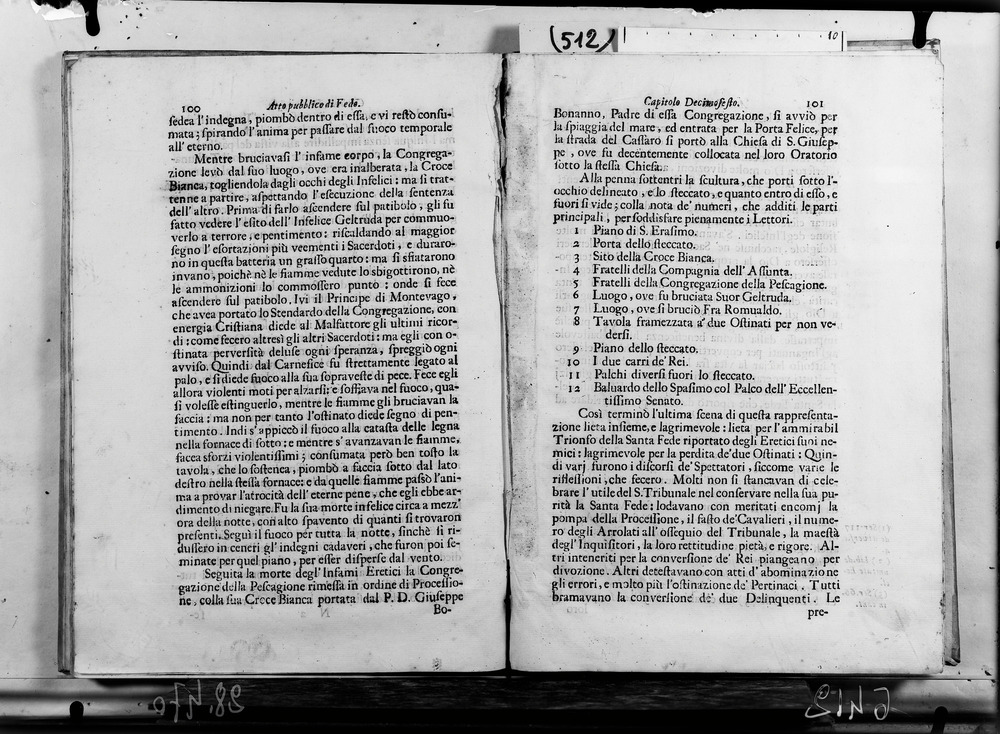 (512)
10
100 Atto pubblico di Fede.
ſedea l'indegna, piombò dentro di eſſa, e vi reſtò conſu-
mata; ſpirando l'anima per paſſare dal fuoco temporale
all'eterno.
Mentre bruciavaſi l'infame corpo, la Congrega-
zione levò dal ſuo luogo, ove era inalberata, la Croce
Bianca, togliendola dagli occhi degl'Infelici: ma ſi trat-
tenne a partire, aſpettando l'eſecuzione della ſentenza
dell'altro. Prima di farlo aſcendere ſul patibolo, gli fu
fatto vedere l'eſito dell'Infelice Geltruda per commuo-
verlo a terrore, e pentimento: riſcaldando al maggior
ſegno l'eſortazioni più veementi i Sacerdoti, e duraro-
no in queſta batteria un graſſo quarto: ma ſi sfiatarono
invano, poichè nè le fiamme vedute lo sbigottirono, nè
le ammonizioni lo commoſſero punto: onde ſi fece
aſcendere ſul patibolo. Ivi il Principe di Montevago,
che avea portato lo Stendardo della Congregazione, con
energia Criſtiana diede al Malfattore gli ultimi ricor-
di: come fecero altresì gli altri Sacerdoti: ma egli con o-
ſtinata perverſità deluſe ogni ſperanza, ſpreggiò ogni
avviſo. Quindi dal Carnefice fu ſtrettamente legato al
palo, e ſi diede fuoco alla ſua ſopraveſte di pece. Fece egli
allora violenti moti per alzarſi; e ſoffiava nel fuoco, qua-
ſi voleſſe eſtinguerlo, mentre le fiamme gli bruciavan la
faccia: ma non per tanto l'oſtinato diede ſegno di pen-
timento. Indi s'appiccò il fuoco alla cataſta delle legna
nella fornace di ſotto: e mentre s'avanzavan le fiamme,
facea sforzi violentiſſimi; conſumata però ben toſto la
tavola, che lo ſoſtenea, piombò a faccia ſotto dal lato
deſtro nella ſteſſa fornace: e da quelle fiamme paſsò l'ani-
ma a provar l'atrocità dell'eterne pene, che egli ebbe ar-
dimento di niegare. Fu la ſua morte infelice circa a mezz'
ora della notte, con alto ſpavento di quanti ſi trovaron
preſenti. Seguì il fuoco per tutta la notte, finchè ſi ri-
duſſero in ceneri gl'indegni cadaveri, che furon poi ſe-
minate per quel piano, per eſſer diſperſe dal vento.
Seguita la morte degl'Infami Eretici la Congre-
gazione della Peſcagione rimeſſa in ordine di Proceſſio-
ne, colla ſua Croce Bianca portata dal P. D. Giuſeppe
Bo-
Capitolo Decimoſeſto. 101
Bonanno, Padre di eſſa Congregazione, ſi avviò per
la ſpiaggia del mare, ed entrata per la Porta Felice, per
la ſtrada del Caſſaro ſi portò alla Chieſa di S. Giuſep-
pe, ove fu decentemente collocata nel loro Oratorio
ſotto la ſteſſa Chieſa.
Alla penna ſottentri la ſcultura, che porti ſotto l'-
occhio delineato, e lo ſteccato, e quanto entro di eſſo, e
fuori ſi vide; colla nota de' numeri, che additi le parti
principali, per ſoddisfare pienamente i Lettori.
1 Piano di S. Eraſimo.
2 Porta dello ſteccato.
3 Sito della Croce Bianca.
4 Fratelli della Compagnia dell'Aſſunta.
5 Fratelli della Congregazione della Peſcagione.
6 Luogo, ove fu bruciata Suor Geltruda.
7 Luogo, ove ſi bruciò Fra Romualdo.
8 Tavola framezzata a' due Oſtinati per non ve-
derſi.
9 Piano dello ſteccato.
10 I due carri de' Rei.
11 Palchi diverſi fuori lo ſteccato.
12 Baluardo dello Spaſimo col Palco dell'Eccellen-
tiſſimo Senato.
Così terminò l'ultima ſcena di queſta rappreſenta-
zione lieta inſieme, e lagrimevole: lieta per l'ammirabil
Trionfo della Santa Fede riportato degli Eretici ſuoi ne-
mici: lagrimevole per la perdita de' due Oſtinati: Quin-
di varj furono i diſcorſi de' Spettatori, ſiccome varie le
rifleſſioni, che fecero. Molti non ſi ſtancavan di cele-
brare l'utile del S. Tribunale nel conſervare nella ſua pu-
rità la Santa Fede: lodavano con meritati encomj la
pompa della Proceſſione, il faſto de' Cavalieri, il nume-
ro degli Arrolati all'oſſequio del Tribunale, la maeſtà
degl'Inquiſitori, la loro rettitudine pietà, e rigore. Al-
tri inteneriti per la converſione de' Rei piangeano per
divozione. Altri deteſtavano con atti d'abominazione
gli errori, e molto più l'oſtinazione de' Pertinaci. Tutti
bramavano la converſione de' due Delinquenti. Le
pre-
28.470
6412